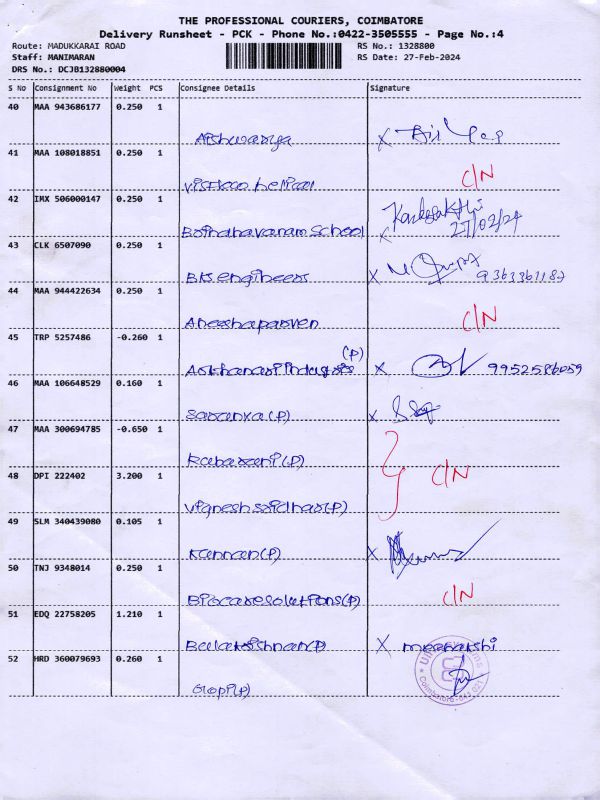 THE PROFESSIONAL COURIERS, COIMBATORE
Delivery Runsheet - PCK - Phone No.:0422-3505555 - Page No.:4
Route: MADUKKARAI ROAD RS No.: 1328800
Staff: MANIMARAN RS Date: 27-Feb-2024
DRS No.: DCJB132880004
S No Consignment No Weight PCS Consignee Details Signature
40 MAA 943686177 0.250 1
Aishwarya X
41 MAA 108018851 0.250 1
C/N
42 IMX 506000147 0.250 1
27/02/24
School X
43 CLK 6507090 0.250 1
Bks.engineers X 9363361187
44 MAA 944422634 0.250 1
Aneeshaparven C/N
45 TRP 5257486 -0.260 1
(P)
X 9952586059
46 MAA 106648529 0.160 1
Saranya(P) X
47 MAA 300694785 -0.650 1
Rabarani(P)
48 DPI 222402 3.200 1
C/N
Vignesh sridhar(P)
49 SLM 340439080 0.105 1
Kannan(P) X
50 TNJ 9348014 0.250 1
Biocaresolutions(P) C/N
51 EDQ 22758205 1.210 1
Balakrishnan(P) X meenakshi
52 HRD 360079693 0.260 1
Gopi(P)